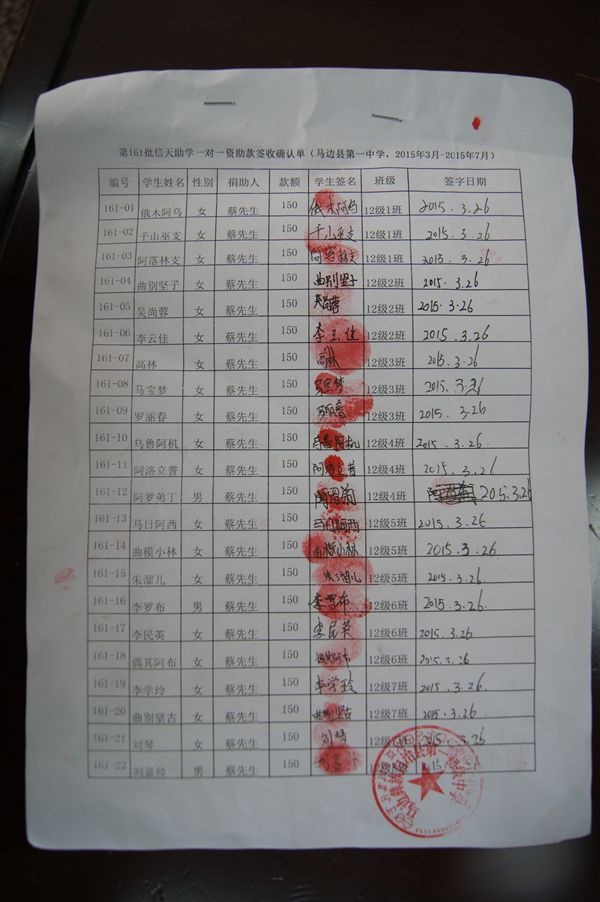 第161批信天助学一对一资助款签收确认单（马边县第一中学，2015年3月-2015年7月）
编号 学生姓名 性别 捐助人 款额 学生签名 班级 签字日期
161-01 俄木阿乌 女 蔡先生 150 俄木阿乌 12级1班 2015.3.26
161-02 千山巫支 女 蔡先生 150 千山巫支 12级1班 2015.3.26
161-03 阿洛林支 女 蔡先生 150 12级1班 2015.3.26
161-04 曲别坚子 女 蔡先生 150 曲别坚子 12级2班 2015.3.26
161-05 吴尚蓉 女 蔡先生 150 吴尚蓉 12级2班 2015.3.26
161-06 李云佳 女 蔡先生 150 李云佳 12级2班 2015.3.26
161-07 高林 女 蔡先生 150 高林 12级3班 2015.3.26
161-08 马宝梦 女 蔡先生 150 马宝梦 12级3班 2015.3.26
161-09 罗丽春 女 蔡先生 150 罗丽春 12级3班 2015.3.26
161-10 乌鲁阿机 女 蔡先生 150 乌鲁阿机 12级4班 2015.3.26
161-11 阿洛立普 女 蔡先生 150 阿洛立普 12级4班 2015.3.26
161-12 阿罗弟丁 男 蔡先生 150 12级4班 2015.3.26
161-13 马日阿西 女 蔡先生 150 马日阿西 12级5班 2015.3.26
161-14 曲模小林 女 蔡先生 150 曲模小林 12级5班 2015.3.26
161-15 朱溜儿 女 蔡先生 150 朱溜儿 12级5班 2015.3.26
161-16 李罗布 男 蔡先生 150 李罗布 12级6班 2015.3.26
161-17 李民英 女 蔡先生 150 李民英 12级6班 2015.3.26
161-18 偶其阿布 女 蔡先生 150 偶其阿布 12级6班 2015.3.26
161-19 李学玲 女 蔡先生 150 李学玲 12级7班 2015.3.26
161-20 曲别坚古 女 蔡先生 150 曲别坚古 12级7班 2015.3.26
161-21 刘琴 女 蔡先生 150 刘琴 12级7班 2015.3.26
161-22 刘富帅 男 蔡先生 150 刘富帅 12级7班
马边彝族自治县第一初级中学